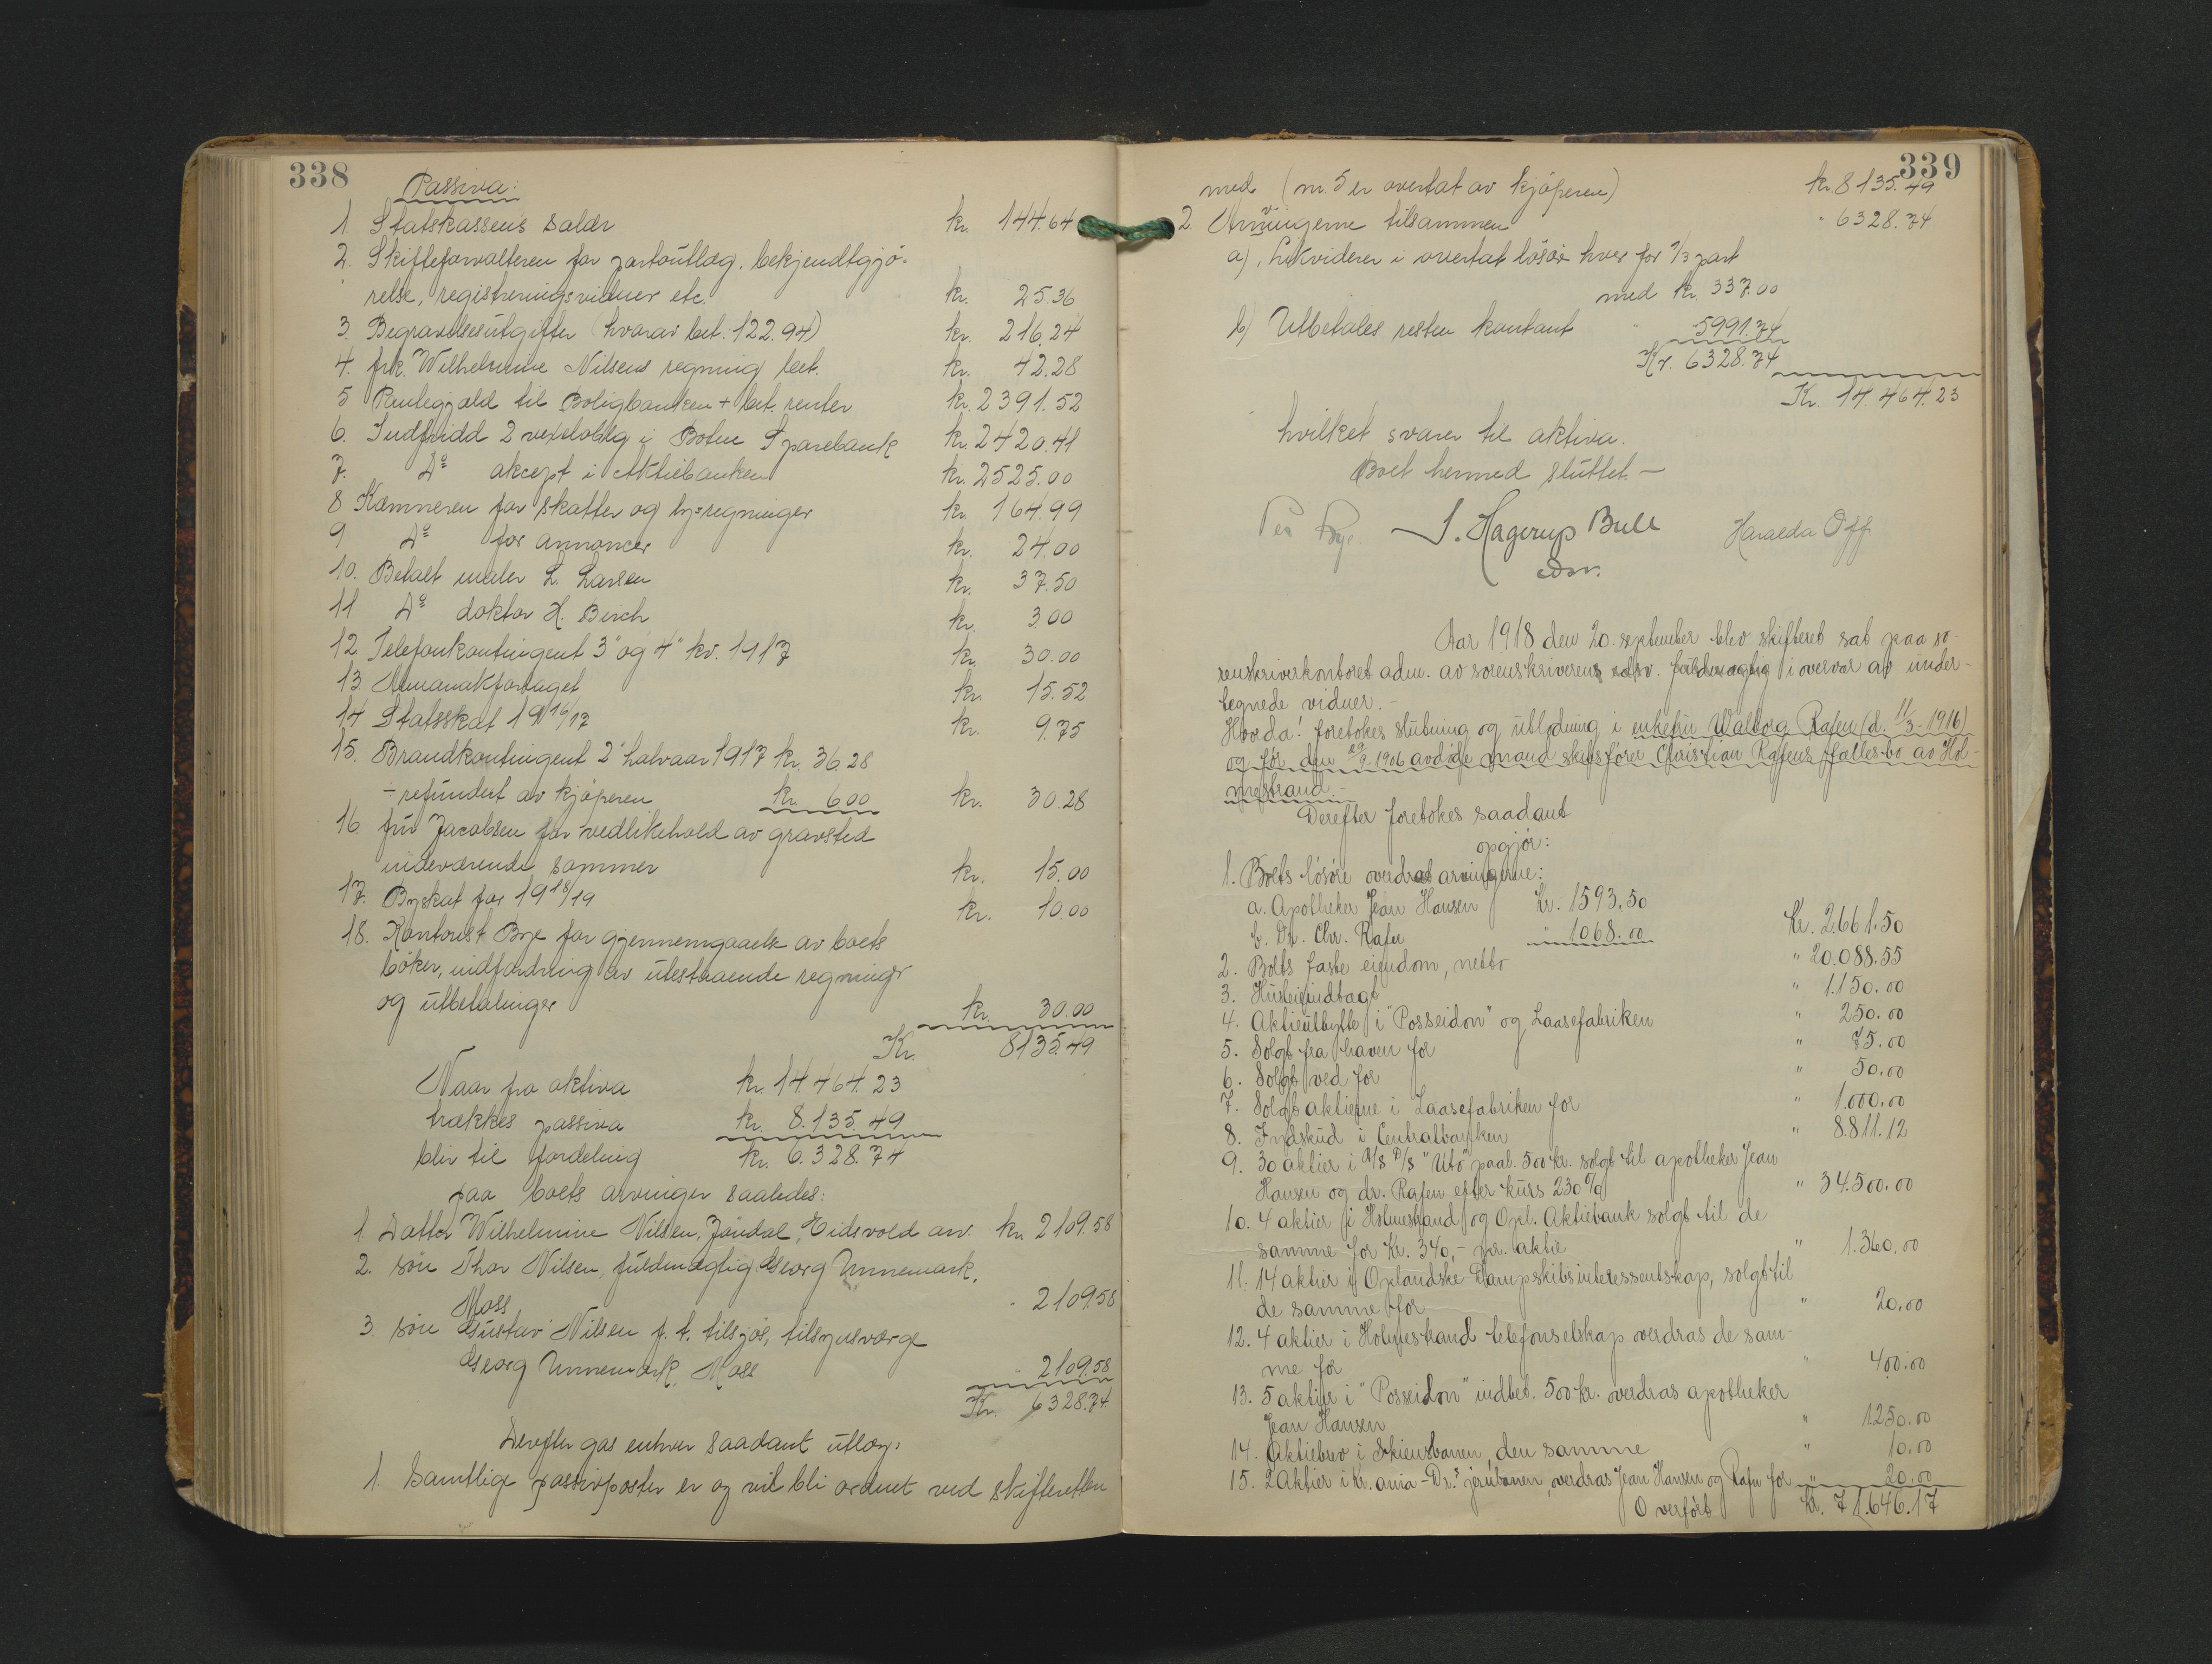 338
Passiva:
1 Statskassens salær kr. 144.64
2. Skifteforvalteren for portoutlæg, bekjendtgjø-
relse, registreringsvidner etc. kr. 25.36
3. Begravelsesutgifter (hvorav bet. 122.94) kr. 216.24
4. frk. Wilhelmine Nilsens regning bet. kr. 42.28
5 Pantegjæld til Boligbanken + bet. renter kr. 2391.52
6. Indfridd 2 vexeloblg i Botne Sparebank kr. 2420.41
7. Do akcept i Aktiebanken kr. 2525.00
8 Kæmneren for skatter og lysregninger kr. 164.99
9 Do for annoncer kr. 24.00
10. Betalt maler L. Larsen kr. 37.50
11 Do doktor H. Birch kr. 3.00
12 Telefonkontingent 3" og 4" kv. 1917 kr. 30.00
13 Almanakforlaget kr. 15.52
14 Statsskat 1916/17 kr. 9.75
15. Brandkontingent 2" halvaar 1917 kr. 36.28
- refundert av kjøperen kr. 6.00 kr. 30.28
16. fru Jacobsen for vedlikehold av gravsted
indeværende sommer kr. 15.00
17. Byskat for 1918/19 kr. 10.00
18. Kontorist Bye for gjennemgaaelse av boets
bøker, indfordring av utestaaende regninger
og utbetalinger kr. 30.00
Kr. 8135.49
Naar fra aktiva kr. 14464.23
trækkes passiva kr. 8.135.49
blir til fordeling kr. 6.328.74
paa boets arvinger saaledes:
1. Datter Wilhelmine Nilsen, Jøndal, Eidsvold arv. kr. 2109.58
2. søn Thor Nilsen, fuldmægtig Georg Unnemark,
Moss " 2109.58
3. søn Gustav Nilsen f. t. tilsjøs, tilsynsværge
Georg Unnemark, Moss " 2109.58
Kr. 6328.74
Derefter gas enhver saadant utlæg:
1. Samtlige passivposter er og vil bli ordnet ved skifteretten
339
med (nr. 5 er overtat av kjøperen) kr. 8135.49
2. Arvingerne tilsammen " 6328.74
a), Likviderer i overtat løsøre hver for 1/3 part
med kr. 337.00
b) Utbetales resten kontant " 5991.74
Kr. 6328.74
Kr. 14.464.23
hvilket svarer til aktiva.
Boet hermed sluttet. –
Per Bye. J. Hagerup Bull Haralda Off
edsv.
Aar 1918 den 20. september blev skifteret sat paa so-
renskriverkontoret adm. av sorenskriverens edsv. fuldmægtig i overvær av under-
tegnede vidner. –
Hvorda! foretokes slutning og utlodning i enkefru Walborg Rafen (d. 11/3-1916)
og før den 29/9-1906 avdøde mand skibsfører Christian Rafens fælles-bo av Hol-
mestrand. –
Derefter foretokes saadant
opgjør:
1. Boets løsøre overdrat arvingerne:
a. Apotheker Jean Hansen Kr. 1593.50
b. Dr. Chr. Rafen " 1068.00 Kr. 2.661.50
2. Boets faste eiendom, netto " 20.088.55
3. Husleieindtægt " 1.150.00
4. Aktieutbytte i "Posseidon" og Laasefabriken " 250.00
5. Solgt fra haven for " 75.00
6. Solgt ved for " 50.00
7. Solgt aktierne i Laasefabriken for " 1.000.00
8. Indskud i Centralbanken " 8.811.12
9. 30 aktier i A/S D/S "Uto" paal. 500 kr. solgt til apotheker Jean
Hansen og dr. Rafen efter kurs 230% " 34.500.00
10. 4 aktier i Holmestrand og Opl. Aktiebank solgt til de
samme for Kr. 340,- pr. aktie " 1.360.00
11. 14 aktier i Oplandske Dampskibsinteressentskap, solgt til
de samme for " 20.00
12. 4 aktier i Holmestrand telefonselskap overdras de sam-
me for " 400.00
13. 5 aktier i "Posseidon" indbet. 500 kr. overdras apotheker
Jean Hansen " 1250.00
14. Aktiebrev i Skiensbanen, den samme " 10.00
15. 2 Aktier i Kr.ania-Dr.s jernbanen, overdras Jean Hansen og Rafen for " 20.00
Overført Kr. 71.646.17